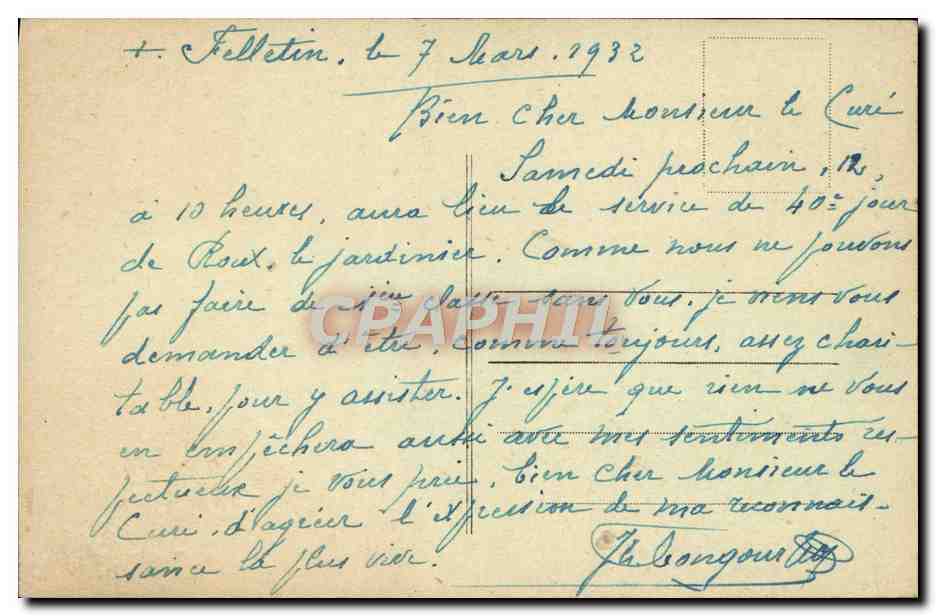 +. Felletin. le 7 Mars. 1932
Bien cher Monsieur le Curé
Samedi prochain, 12,
à 10 heures, aura lieu le service de 40e jour
de Roux, le jardinier. Comme nous ne pouvons
pas faire de 1ère classe sans vous, je viens vous
demander d'être, comme toujours, assez chari-
table, pour y assister. J'espère que rien ne vous
en empêchera aussi avec mes sentiments res-
pectueux je vous prie, bien cher Monsieur le
Curé, d'agréer l'expression de ma reconnais-
sance la plus vive.
CPAPHIL